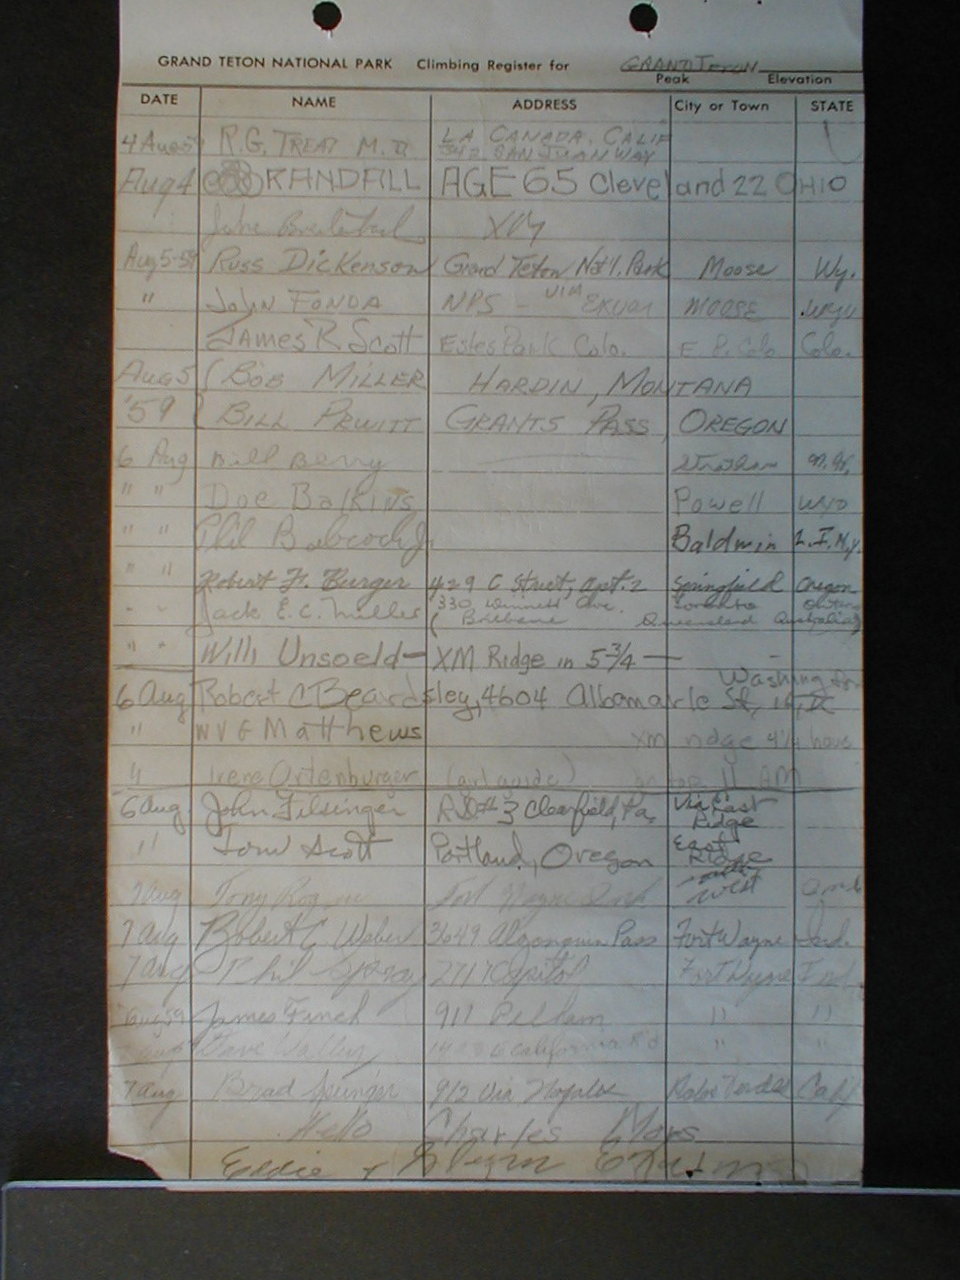 GRAND TETON NATIONAL PARK Climbing Register for GRAND TETON
Peak Elevation
DATE NAME ADDRESS City or Town STATE
4 Aug R.G. TREAT M.D. LA CANADA, CALIF
SAN JUAN WAY
Aug 4 RANDALL AGE 65 Cleveland 22 OHIO
XM
Aug 5-59 Russ Dickenson Grand Teton Nat'l. Park Moose Wy.
" JOHN FONDA NPS - VIA MOOSE
James R Scott Estes Park Colo. E. P. Colo Colo.
Aug 5 ( BOB MILLER HARDIN, MONTANA
'59 ( BILL PRUITT GRANTS PASS, OREGON
6 Aug Bill Berry
" " Doe Balkins Powell wyo
" " Phil Babcock Jr. Baldwin L.I. N.Y.
" " Robert F. Burger 429 C Street, Apt. 2 Springfield Oregon
Jack E.C. Miller 330 Ave. Toronto
( Brisbane Queensland Australia)
" " Willi Unsoeld - XM Ridge in 5 3/4 —
Washington
6 Aug Robert C Beardsley, 4604 Albamarle St, 16, DC
" W V G Matthews XM ridge 4 1/4 hours
" Irene Ortenburger (girl guide) on top 11 AM
6 Aug John Filsinger RD#3 Clearfield, Pa. Via East
Ridge
" Tom Scott Portland, Oregon East
Ridge
7 Aug Tony Fort Wayne Ind west
7 Aug Robert C Weber 3649 Algonquin Pass Fort Wayne Ind.
7 Aug Phil 2717 Capitol Fort Wayne Ind.
James Finch 911 Pelham " "
Dave California Rd " "
7 Aug Brad Springer 912 Via Nogales Calif
Hello Charles Mars
Eddie + Glenn Exum